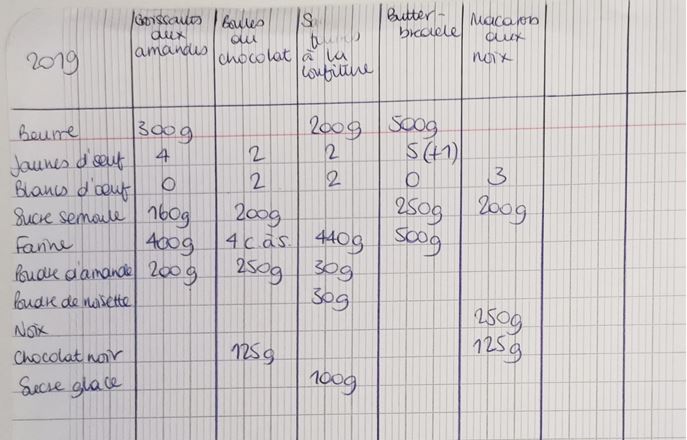 2019
Croissants aux amandes
Boules au chocolat
S
à la confiture
Butter-bredele
Macarons aux noix
Beurre 300g 200g 500g
Jaunes d'oeuf 4 2 2 5 (+1)
Blancs d'oeuf 0 2 2 0 3
Sucre semoule 160g 200g 250g 200g
Farine 400g 4 c.à s. 440g 500g
Poudre d'amande 200g 250g 30g
Poudre de noisette 30g
Noix 250g
Chocolat noir 125g 125g
Sucre glace 100g